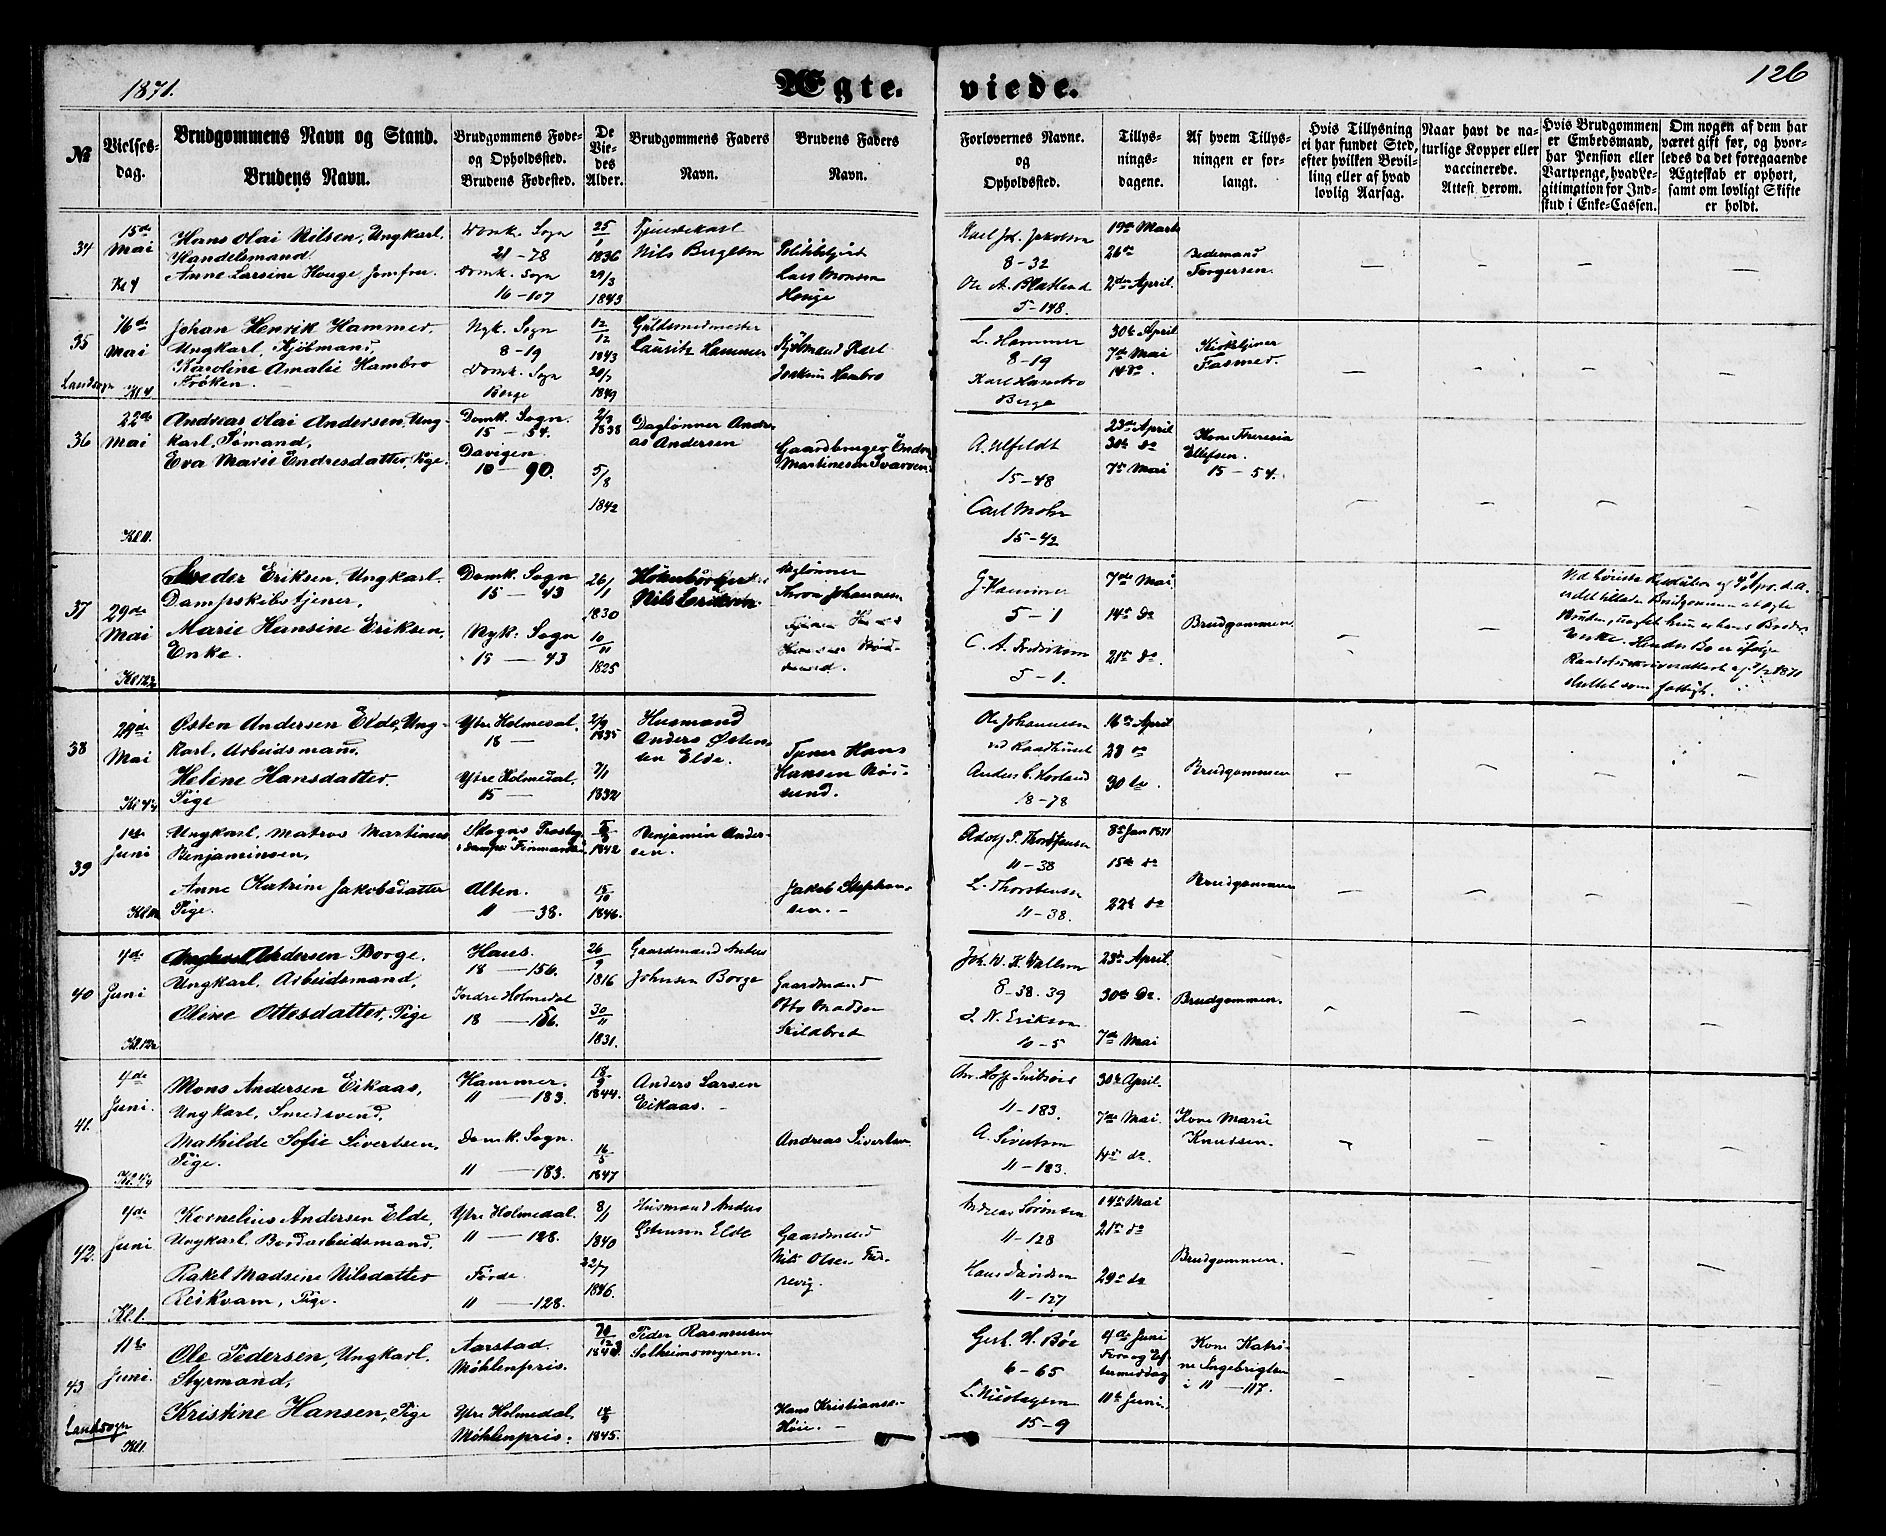 1871.
Ægte.
viede.
126
№
Vielses-
dag.
Brudgommens Navn og Stand.
Brudens Navn.
Brudgommens Føde-
og Opholdssted.
Brudens Fødested.
De
Vie-
des
Alder.
Brudgommens Faders
Navn.
Brudens Faders
Navn.
Forlovernes Navne.
og
Opholdssted.
Tillys-
nings-
dagene.
Af hvem Tillys-
ningen er for-
langt.
Hvis Tillysning
ei har fundet Sted,
efter hvilken Bevil-
ling eller af hvad
lovlig Aarsag.
Naar havt de na-
turlige Kopper eller
vaccinerede.
Attest derom.
Hvis Brudgommen
er Embedsmand,
har Pension eller
Vartpenge, hvad Le-
gitimation for Ind-
skud i Enke-Cassen.
Om nogen af dem har
været gift før, og hvor-
ledes da det foregaaende
Ægteskab er ophørt,
samt om lovligt Skifte
er holdt.
34
15de
Mai
Kl 4
Hans Olai Nilsen, Ungkarl.
Handelsmand
Anne Larsine Houge Jomfru.
Domk. Sogn
21-78
Domk. Sogn
16-107
25/1
1836
29/3
1843
Tjenestekarl
Nils
Lars Monsen
Houge
Karl Joh. Jakobsen
8-32
Ole A. Blatland
5-148.
19de Marts
26de
2den April.
Bedemand
Torgersen.
35
Landsogn
16de
Mai
Kl 4
Johan Henrik Hammer,
Ungkarl, Kjøbmand,
Karoline Amalie Hambro
Frøken.
Nyk. Sogn
8-19
Domk. Sogn
Berge
12/12
1843
20/7
1849
Guldsmedmester
Lauritz Hammer
Kjøbmand Karl
Joakim Hambro
L. Hammer
8-19
Karl Hambro
Berge
30te April
7de Mai
14de.
Kirketjener
Fasmer
36
22de
Mai
Kl 11.
Andreas Olai Andersen, Ung-
karl, Sømand,
Eva Marie Endresdatter, Pige.
Domk. Sogn.
15-54.
Davigen
10-90.
2/9
1838
5/8
1842
Daglønner Andre-
as Andersen
Gaardbruger Endre
Martinesen Svarven
A. Ulfeldt
15-48
Carl Mohr
15-42
23de April
30te do
7de Mai
Kone Theresia
Ellefsen
15-54.
37
29de
Mai
Kl 12½
Sveder Eriksen, Ungkarl.
Dampskibstjener,
Marie Hansine Eriksen,
Enke.
Domk. Sogn
15-43
Nyk: Sogn
15-43
26/1
1830
10/11
1825
Nils Eriksen
Daglønner
Thron Johannesen
G. Hammer
5-1
C. A. Fredriksen
5-1.
7de Mai
14de Do
21de do.
Brudgommen
38
29de
Mai
Kl 4¼
Østen Andersen Elde, Ung-
karl, Arbeidsmand,
Heline Hansdatter.
Pige
Ytre Holmedal.
18-
Ytre Holmedal.
15-
2/9
1835
7/1
1832
Husmand
Anders Østen-
sen Elde.
Tjener Hans
Hansen Nøs-
sund.
Ole Johannesen
ved Raadhuset
Anders C. Horland
18-78
16de April
23 do
30 do.
Brudgommen
39
1ste
Juni
Ungkarl, Matros Martinus
Benjaminsen,
Anne Katrine Jakobsdatter
Pige.
Alten.
11-38.
1842
15/10
1846.
Benjamin Ander-
sen.
Jakob Stephan-
sen.-
Adolf P. Thorstensen
11-38
L. Thorstensen
11-38.
8de Jan 1871
15de do
22de do
Brudgommen
40
4de
Juni
Kl. 12½
Andersen Borge.
Ungkarl, Arbeidsmand,
Oline Ottesdatter, Pige
Haus.
18-156.
Indre Holmedal
18-156.
26/9
1816
30/11
1831.
Gaardmand Anders
Johnsen Borge
Gaardmand
Otto Madsen
Skildbred
Joh. W. K. Wallem
8-38. 39
J. N. Eriksen
10-5
23de April.
30te Do.
7de Mai
Brudgommen.
41.
4de
Juni.
Kl. 4¼
Mons Andersen Eikaas,
Ungkarl, Smedsvend,
Mathilde Sofie Sivertsen,
Pige.
Hammer.
11-183.
Domk. Sogn.
11-183.
18/9
1844.
16/5
1847
Anders Larsen
Eikaas.-
Andreas Sivertsen
11-183.
A. Sivertsen
11-183.
30te April.
7de Mai.
14de do.
Kone Marie
Knudsen.
42.
4de
Juni
Kl. 1.
Kornelius Andersen Elde,
Ungkarl. Bordarbeidsmand,
Rakel Madsine Nilsdatter
Reikvam, Pige.
Ytre Holmedal.
11-128.
Førde.
11-128.
8/11
1840
22/7
1846.
Husmand Anders
Østensen Elde
Gaardmand
Nils Olsen
Andreas Sørensen
11-128
Hans Davidsen
11-127
14de Mai
21de do
29de do
Brudgommen.
43
Landsogn
11te
Juni.
Kl 1.
Ole Pedersen, Ungkarl.
Styrmand,
Kristine Hansen, Pige
Aarstad.
Møhlenpris.
Ytre Holmedal.
Møhlenpris.
1845.
Peder Rasmussen
Solheimsmyren.
Hans Kristiansen
Høie.-
Gert. H. Bøe
6-65
15-9
4de Juni
For og Ef-
termiddag
11te Juni
Kone Katri-
ne Ingebrigtsen
i 11-117.